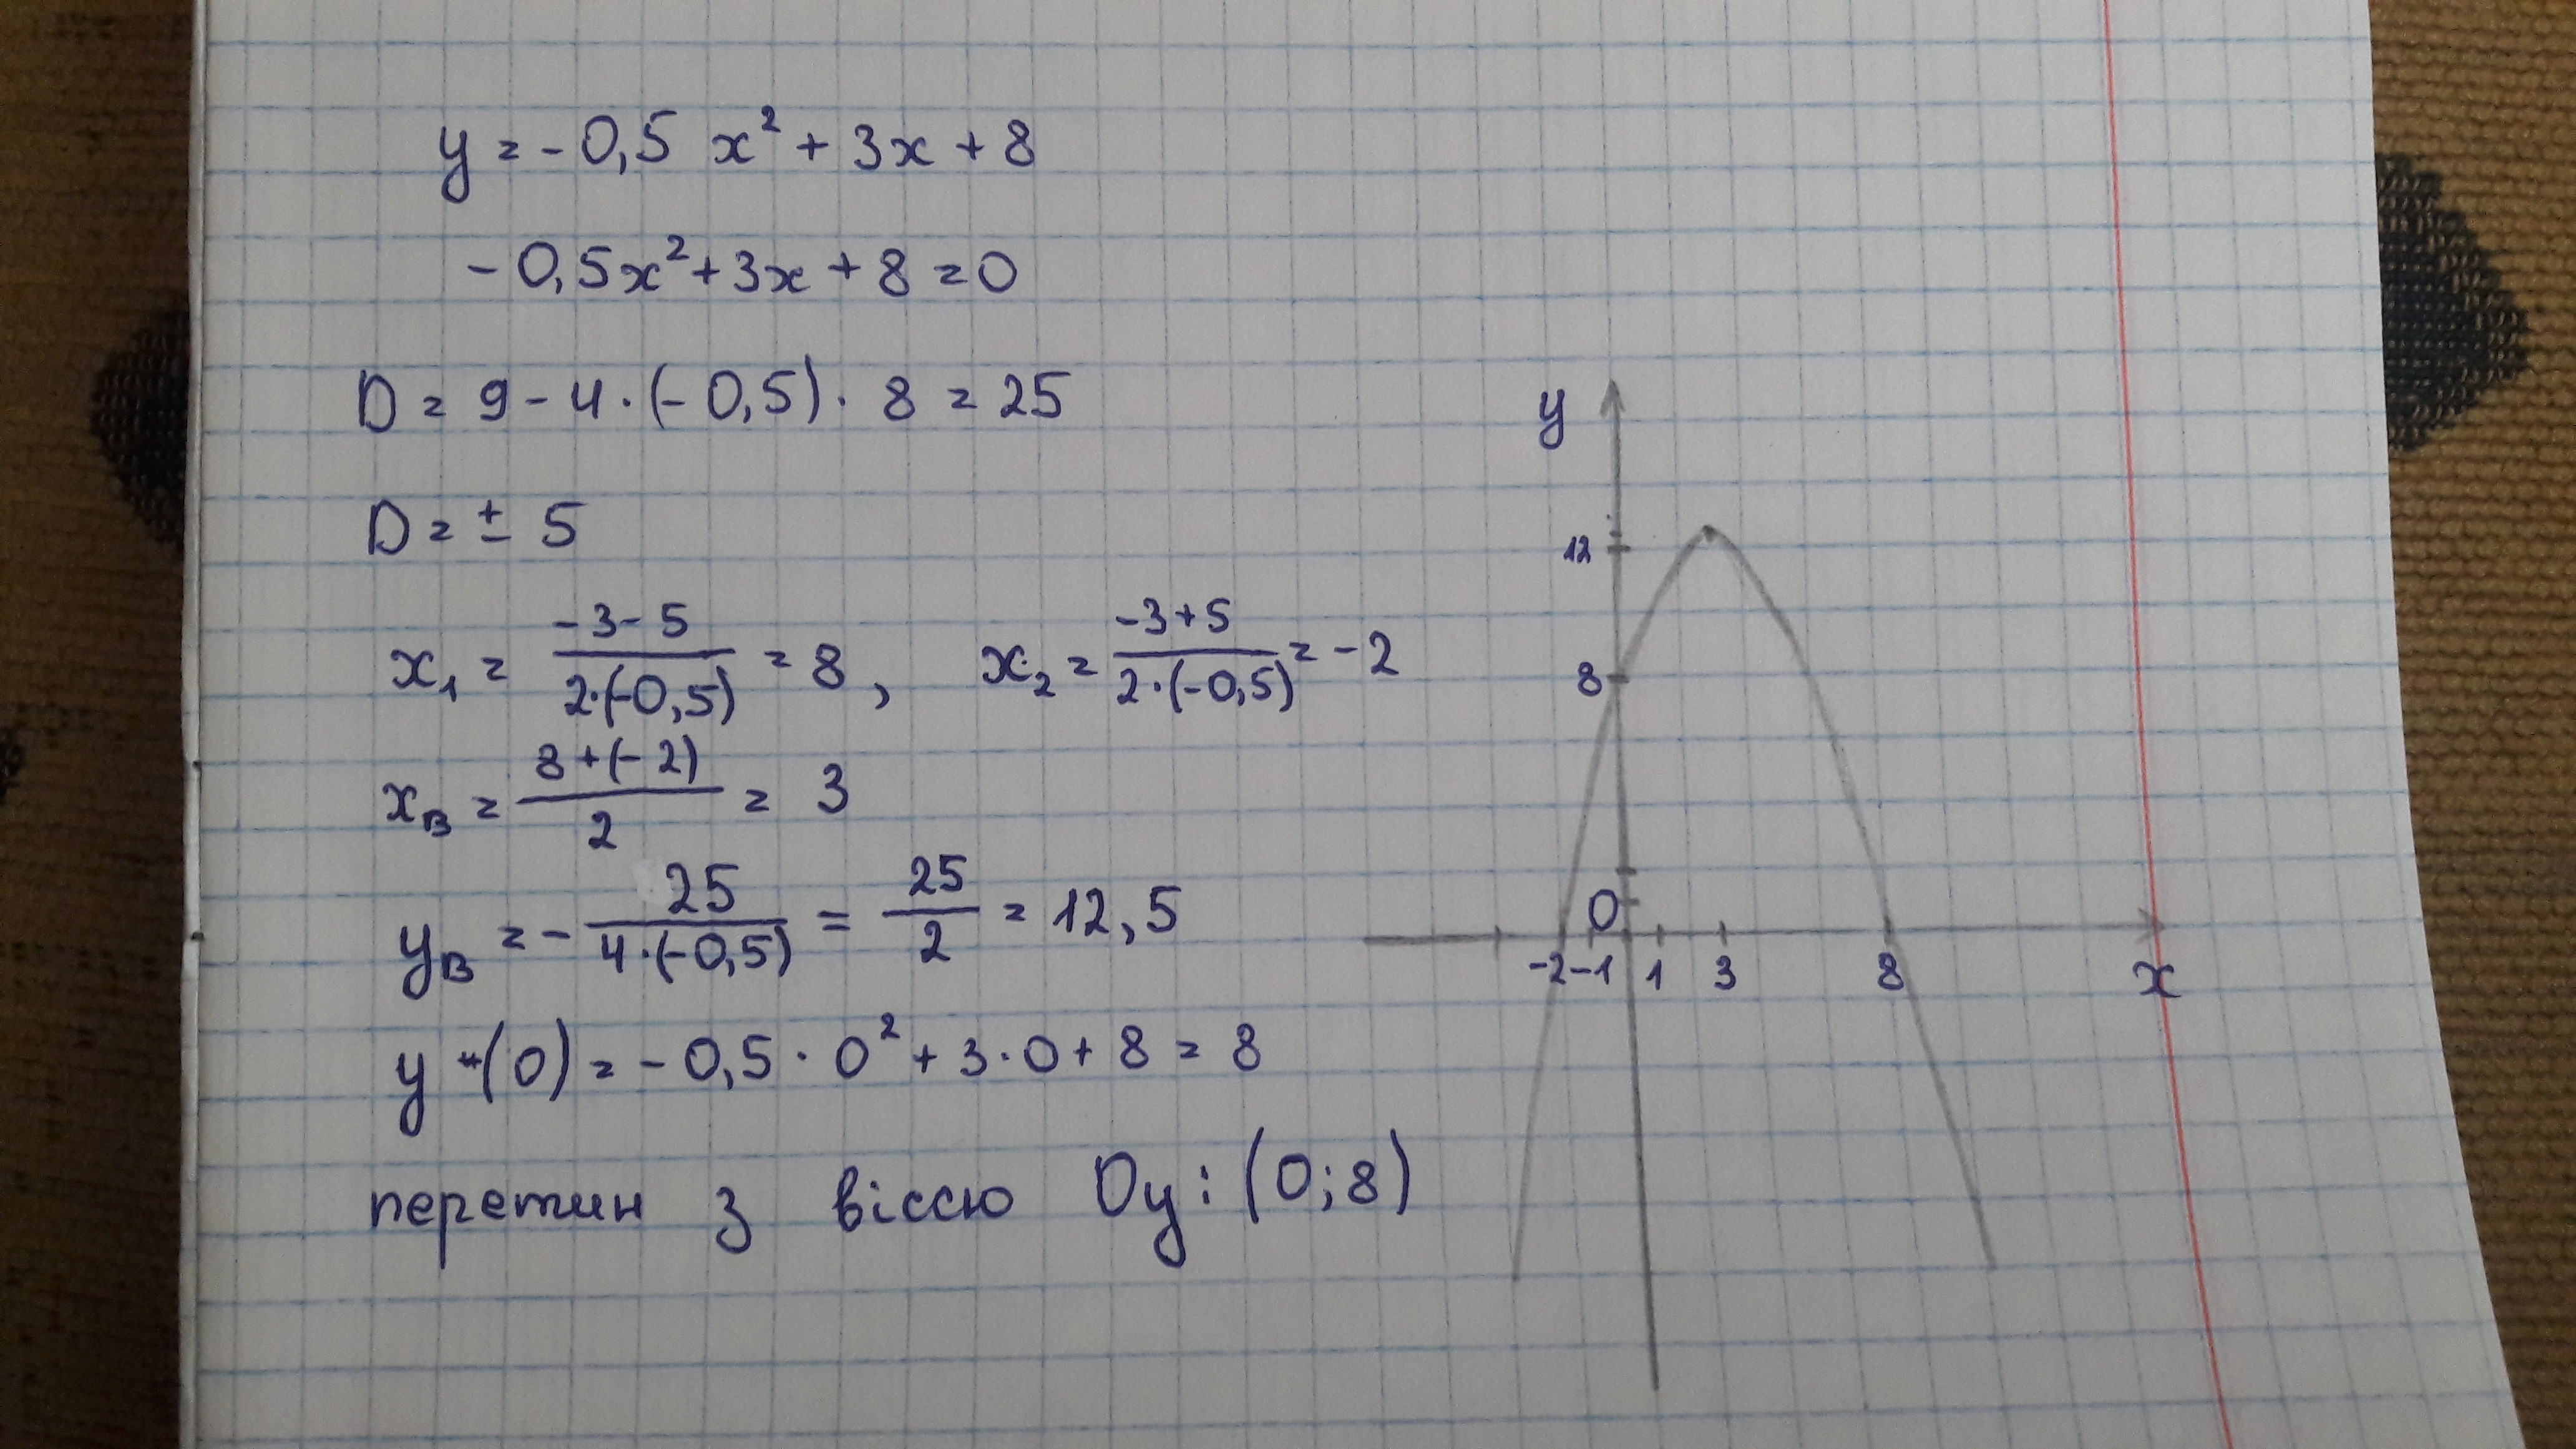 y = -0,5 x² + 3x + 8
-0,5x² + 3x + 8 = 0
D = 9 - 4 · (-0,5) · 8 = 25
D = ± 5
x₁ = (-3-5)/(2·(-0,5)) = 8 , x₂ = (-3+5)/(2·(-0,5)) = -2
xв = (8+(-2))/2 = 3
yв = - 25/(4·(-0,5)) = 25/2 = 12,5
y (0) = -0,5 · 0² + 3·0 + 8 = 8
перетин з віссю Oy: (0;8)
y
12
8
0
-2 -1 1 3 8 x